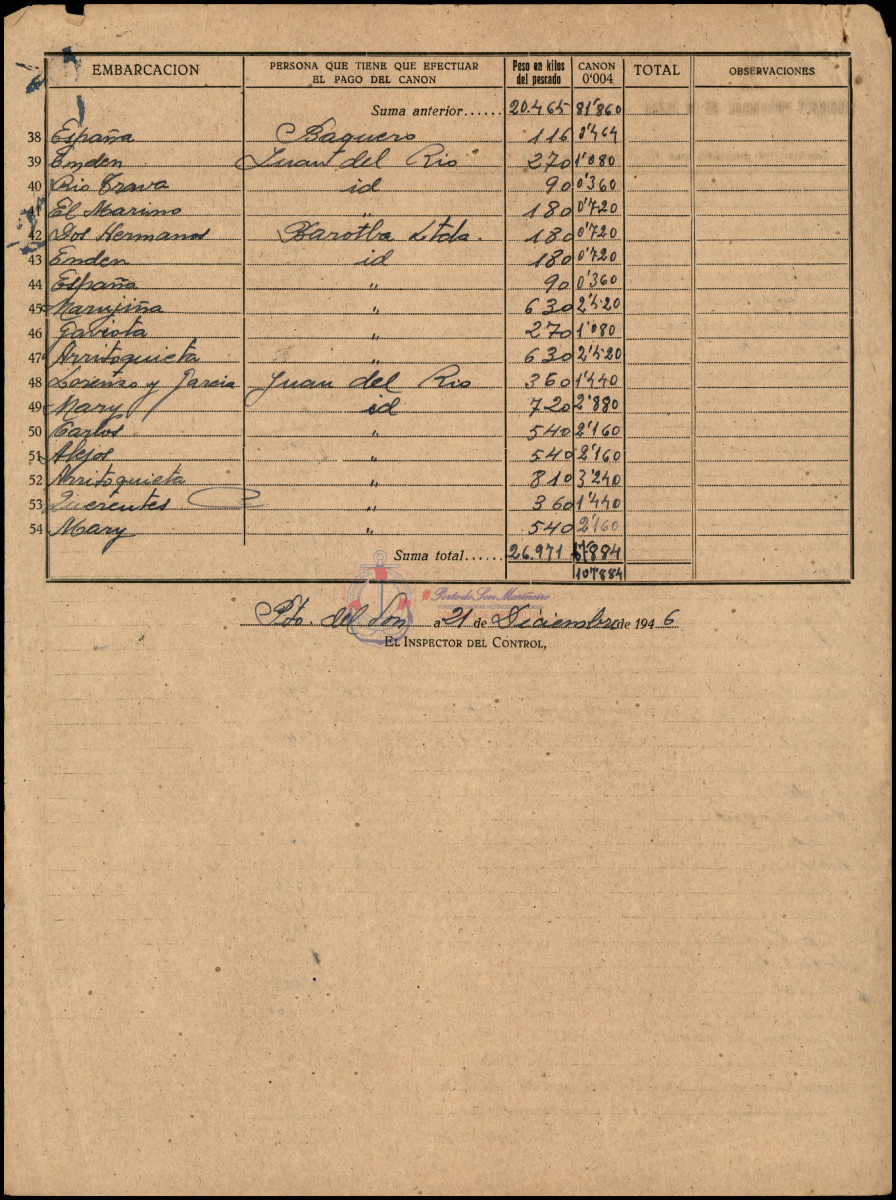 EMBARCACION PERSONA QUE TIENE QUE EFECTUAR EL PAGO DEL CANON Peso en kilos del pescado CANON 0'004 TOTAL OBSERVACIONES
Suma anterior...... 20.465 81'860
38 España Baquero 116 0'464
39 Emden Juan del Rio 270 1'080
40 Rio Trava id 90 0'360
41 El Marino " 180 0'720
42 Dos Hermanos Barotba Ltda. 180 0'720
43 Emden id 180 0'720
44 España " 90 0'360
45 Marujiña " 630 2'520
46 Gaviota " 270 1'080
47 Arritoquieta " 630 2'520
48 Lorenzo y Garcia Juan del Rio 360 1'440
49 Mary id 720 2'880
50 Carlos " 540 2'160
51 Alejos " 540 2'160
52 Arritoquieta " 810 3'240
53 " 360 1'440
54 Mary " 540 2'160
Suma total...... 26.971
107'884
Porto do Son Mariñeiro
Pto. del Son a 21 de Diciembre de 1946
EL INSPECTOR DEL CONTROL,